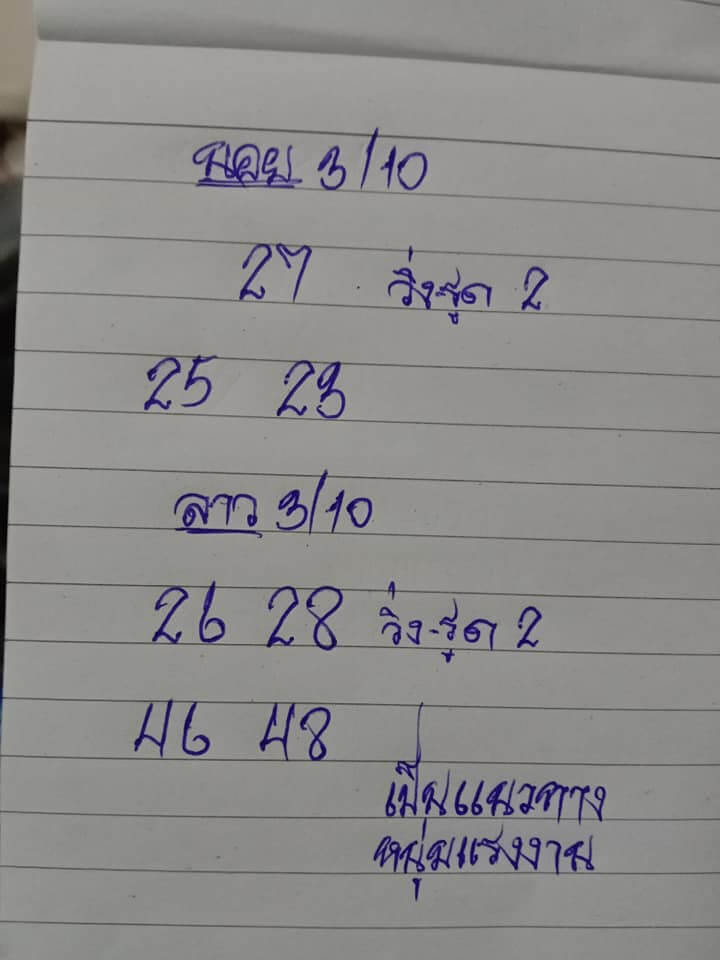 นอย 3/10
27 วิ่ง-รูด 2
25 23
ลาว 3/10
26 28 วิ่ง-รูด 2
46 48
เป็นแนวทาง
หนุ่มแรงงาน